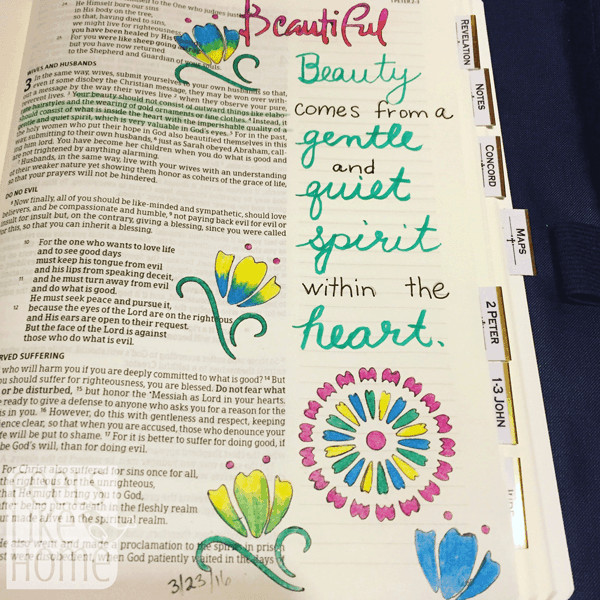 Himself bore our sins
in His body on the tree,
so that, having died to sins,
we might live for righteousness;
you have been healed by His
25 For you were like sheep going astray,
but you have now returned
to the Shepherd and Guardian of your souls.
WIVES AND HUSBANDS
3 In the same way, wives, submit yourselves to your own husbands so that,
even if some disobey the Christian message, they may be won over without
a message by the way their wives live 2 when they observe your pure,
reverent lives. 3 Your beauty should not consist of outward things like elaborate
hairstyles and the wearing of gold ornaments or fine clothes. 4 Instead, it
should consist of what is inside the heart with the imperishable quality of a
gentle and quiet spirit, which is very valuable in God's eyes. 5 For in the past,
the holy women who put their hope in God also beautified themselves in this
way, submitting to their own husbands, 6 just as Sarah obeyed Abraham, call-
ing him lord. You have become her children when you do what is good and
are not frightened by anything alarming.
7 Husbands, in the same way, live with your wives with an understanding
of their weaker nature yet showing them honor as coheirs of the grace of life,
so that your prayers will not be hindered.
DO NO EVIL
8 Now finally, all of you should be like-minded and sympathetic, should love
believers, and be compassionate and humble, 9 not paying back evil for evil or
insult for insult but, on the contrary, giving a blessing, since you were called
for this, so that you can inherit a blessing.
10 For the one who wants to love life
and to see good days
must keep his tongue from evil
and his lips from speaking deceit,
11 and he must turn away from evil
and do what is good.
He must seek peace and pursue it,
12 because the eyes of the Lord are on the righteous
and His ears are open to their request.
But the face of the Lord is against
those who do what is evil.
RVED SUFFERING
who will harm you if you are deeply committed to what is good? 14 But
you should suffer for righteousness, you are blessed. Do not fear what
or be disturbed, 15 but honor the Messiah as Lord in your hearts.
ready to give a defense to anyone who asks you for a reason for the
is in you. 16 However, do this with gentleness and respect, keeping
ience clear, so that when you are accused, those who denounce your
life will be put to shame. 17 For it is better to suffer for doing good, if
be God's will, than for doing evil.
For Christ also suffered for sins once for all,
the righteous for the unrighteous,
that He might bring you to God,
after being put to death in the fleshly realm
but made alive in the spiritual realm.
He also went and made a proclamation to the spirits in prison
were disobedient, when God patiently waited in the days of
3/23/16
1 PETER 2-3
Beautiful
Beauty
comes from a
gentle
and
quiet
spirit
within the
heart.
REVELATION
NOTES
CONCORD
MAPS
2 PETER
1-3 JOHN
JUDE
Home